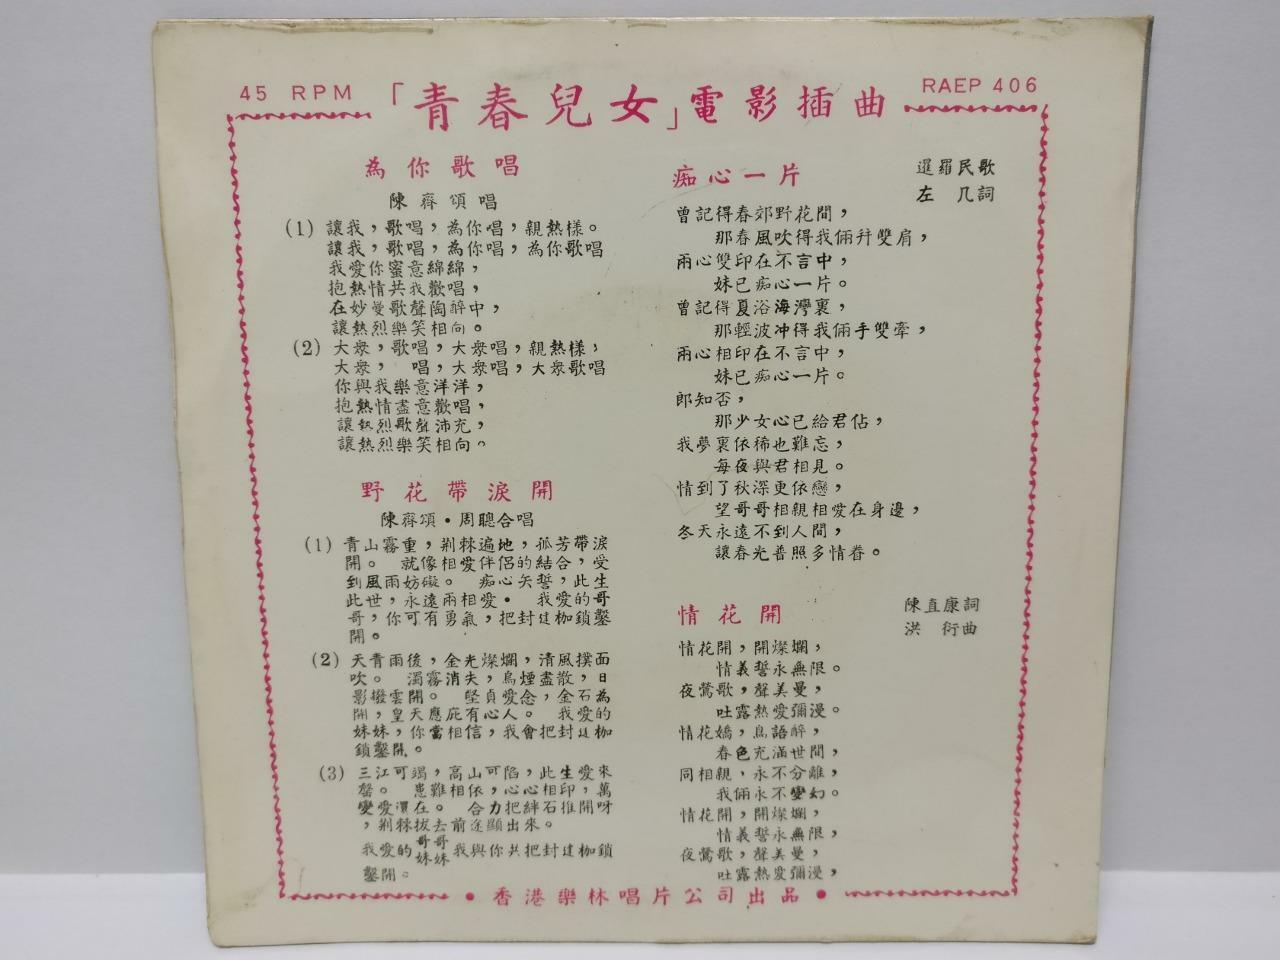 45 RPM 「青春兒女」電影插曲 RAEP 406
為你歌唱
陳齊頌唱
(1) 讓我,歌唱,為你唱,親熱樣。
讓我,歌唱,為你唱,為你歌唱
我愛你蜜意綿綿,
抱熱情共我歡唱,
在妙曼歌聲陶醉中,
讓熱烈樂笑相向。
(2) 大衆,歌唱,大衆唱,親熱樣,
大衆, 唱,大衆唱,大衆歌唱
你與我樂意洋洋,
抱熱情盡意歡唱,
讓熱烈歌聲沛充,
讓熱烈樂笑相向。
野花帶淚開
陳齊頌・周聰合唱
(1) 青山霧重,荆棘遍地,孤芳帶淚
開。 就像相愛伴侶的結合,受
到風雨妨礙。 痴心矢誓,此生
此世,永遠兩相愛・ 我愛的哥
哥,你可有勇氣,把封建枷鎖鑿
開。
(2) 天青雨後,金光燦爛,清風撲面
吹。 濁霧消失,烏煙盡散,日
影撥雲開。 堅貞愛念,金石為
開,皇天應庇有心人。 我愛的
妹妹,你當相信,我會把封建枷
鎖鑿開。
(3) 三江可竭,高山可陷,此生愛來
罄。 患難相依,心心相印,萬
變愛還在。 合力把絆石推開呀
,荆棘拔去前途顯出來。
我愛的哥哥妹妹我與你共把封建枷鎖
鑿開。
痴心一片
暹羅民歌
左 几詞
曾記得春郊野花間,
那春風吹得我倆幷雙肩,
兩心雙印在不言中,
妹已痴心一片。
曾記得夏浴海灣裏,
那輕波冲得我倆手雙牽,
兩心相印在不言中,
妹已痴心一片。
郎知否,
那少女心已給君佔,
我夢裏依稀也難忘,
每夜與君相見。
情到了秋深更依戀,
望哥哥相親相愛在身邊,
冬天永遠不到人間,
讓春光普照多情眷。
情花開
陳直康詞
洪 衍曲
情花開,開燦爛,
情義誓永無限。
夜鶯歌,聲美曼,
吐露熱愛彌漫。
情花嬌,鳥語醉,
春色充滿世間,
同相親,永不分離,
我倆永不變幻。
情花開,開燦爛,
情義誓永無限,
夜鶯歌,聲美曼,
吐露熱愛彌漫,
• 香港樂林唱片公司出品 •